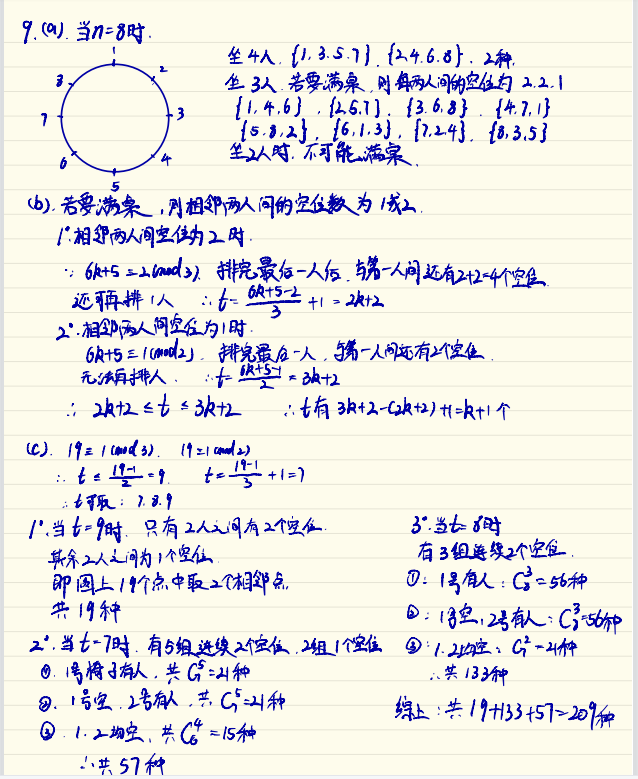 9.(a). 当n=8时.
1
2
3
4
5
6
7
8
坐4人. {1,3,5,7} {2,4,6,8}. 2种.
坐3人. 若要满桌, 则每两人间的空位为 2.2.1
{1,4,6}, {2,5,7}, {3,6,8}, {4,7,1}
{5,8,2}, {6,1,3}, {7,2,4}, {8,3,5}
坐2人时. 不可能满桌.
(b). 若要满桌, 则相邻两人间的空位数为 1或2.
1° 相邻两人间空位为2时.
∵ 6k+5≡2(mod3). 排完最后一人后, 与第一人间还有2+2=4个空位.
还可再排1人 ∴ t=\frac{6k+5-2}{3}+1=2k+2
2°. 相邻两人间空位为1时.
6k+5≡1(mod2). 排完最后一人, 与第一人间还有2个空位.
无法再排人. ∴ t=\frac{6k+5-1}{2}=3k+2
∴ 2k+2≤t≤3k+2 ∴ t有 3k+2-(2k+2)+1=k+1个
(c). 19≡1(mod3). 19≡1(mod2)
∴ t≤\frac{19-1}{2}=9. t=\frac{19-1}{3}+1=7
∴ t可取: 7.8.9
1°. 当t=9时. 只有2人之间有2个空位.
其余2人之间为1个空位
即圆上19个点中取2个相邻点.
共19种
2°. 当t=7时. 有5组连续2个空位. 2组1个空位
①. 1号椅子有人, 共 C_7^5=21种
②. 1号空. 2号有人, 共 C_7^5=21种
③. 1.2均空. 共 C_6^4=15种
∴共57种
3°. 当t=8时
有3组连续2个空位.
①: 1号有人: C_8^3=56种
②: 1号空, 2号有人: C_8^3=56种
③: 1.2均空: C_7^2=21种
∴共133种
综上: 共19+133+57=209种